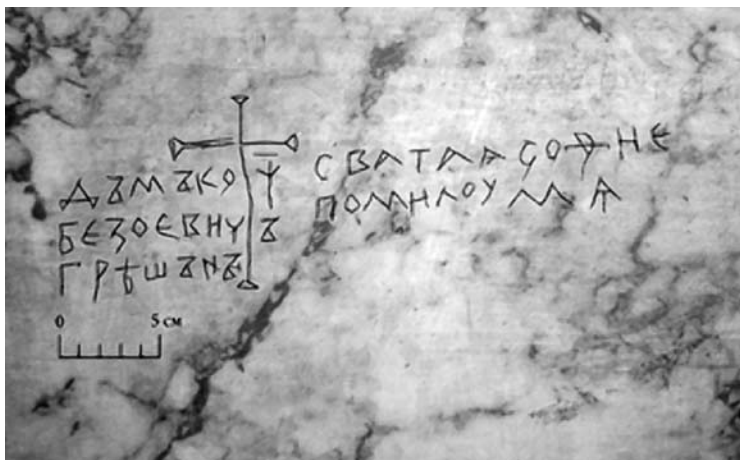 ДЪМЪКО
БЕЗОЕВИЧЪ
ГРѢШЪНЪ
СВАТАА СОФИЕ
ПОМИЛОУ МѦ
0 5 см